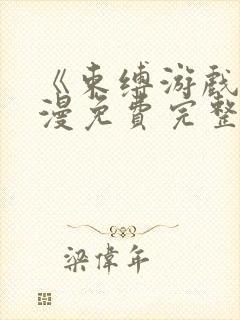 《束缚游戏
漫免費完整
梁偉年